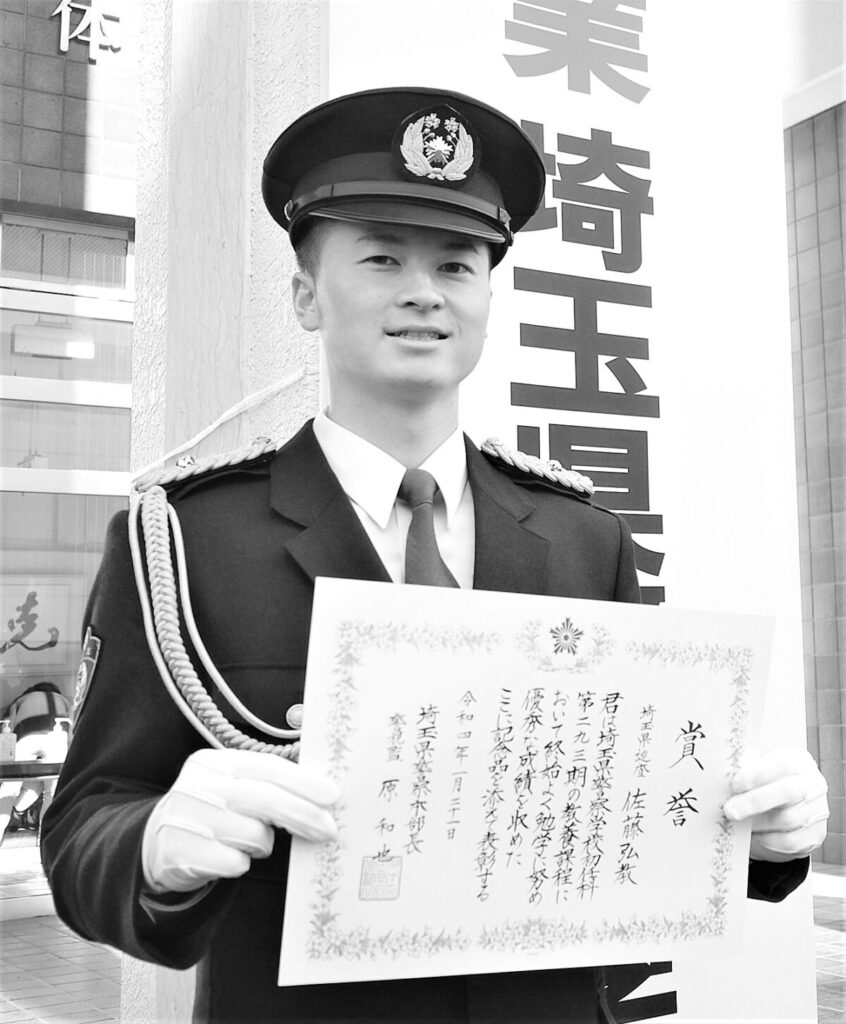 体
業 埼玉県
賞誉
埼玉県巡査 佐藤弘教
君は埼玉県警察学校初任科
第二九三期の教養課程に
おいて終始よく勉学に努め
優秀な成績を収めた
ここに記念品を添えて表彰する
令和四年一月二十一日
埼玉県警察本部長
警視監 原 和也